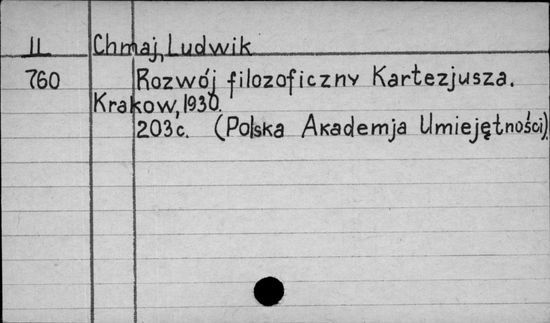 II Chmaj, Ludwik
760 Rozwój filozoficzny Kartezjusza.
Krakow, 1930.
203c. (Polska Akademja Umiejętności)